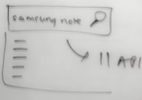 samsung note
11 API